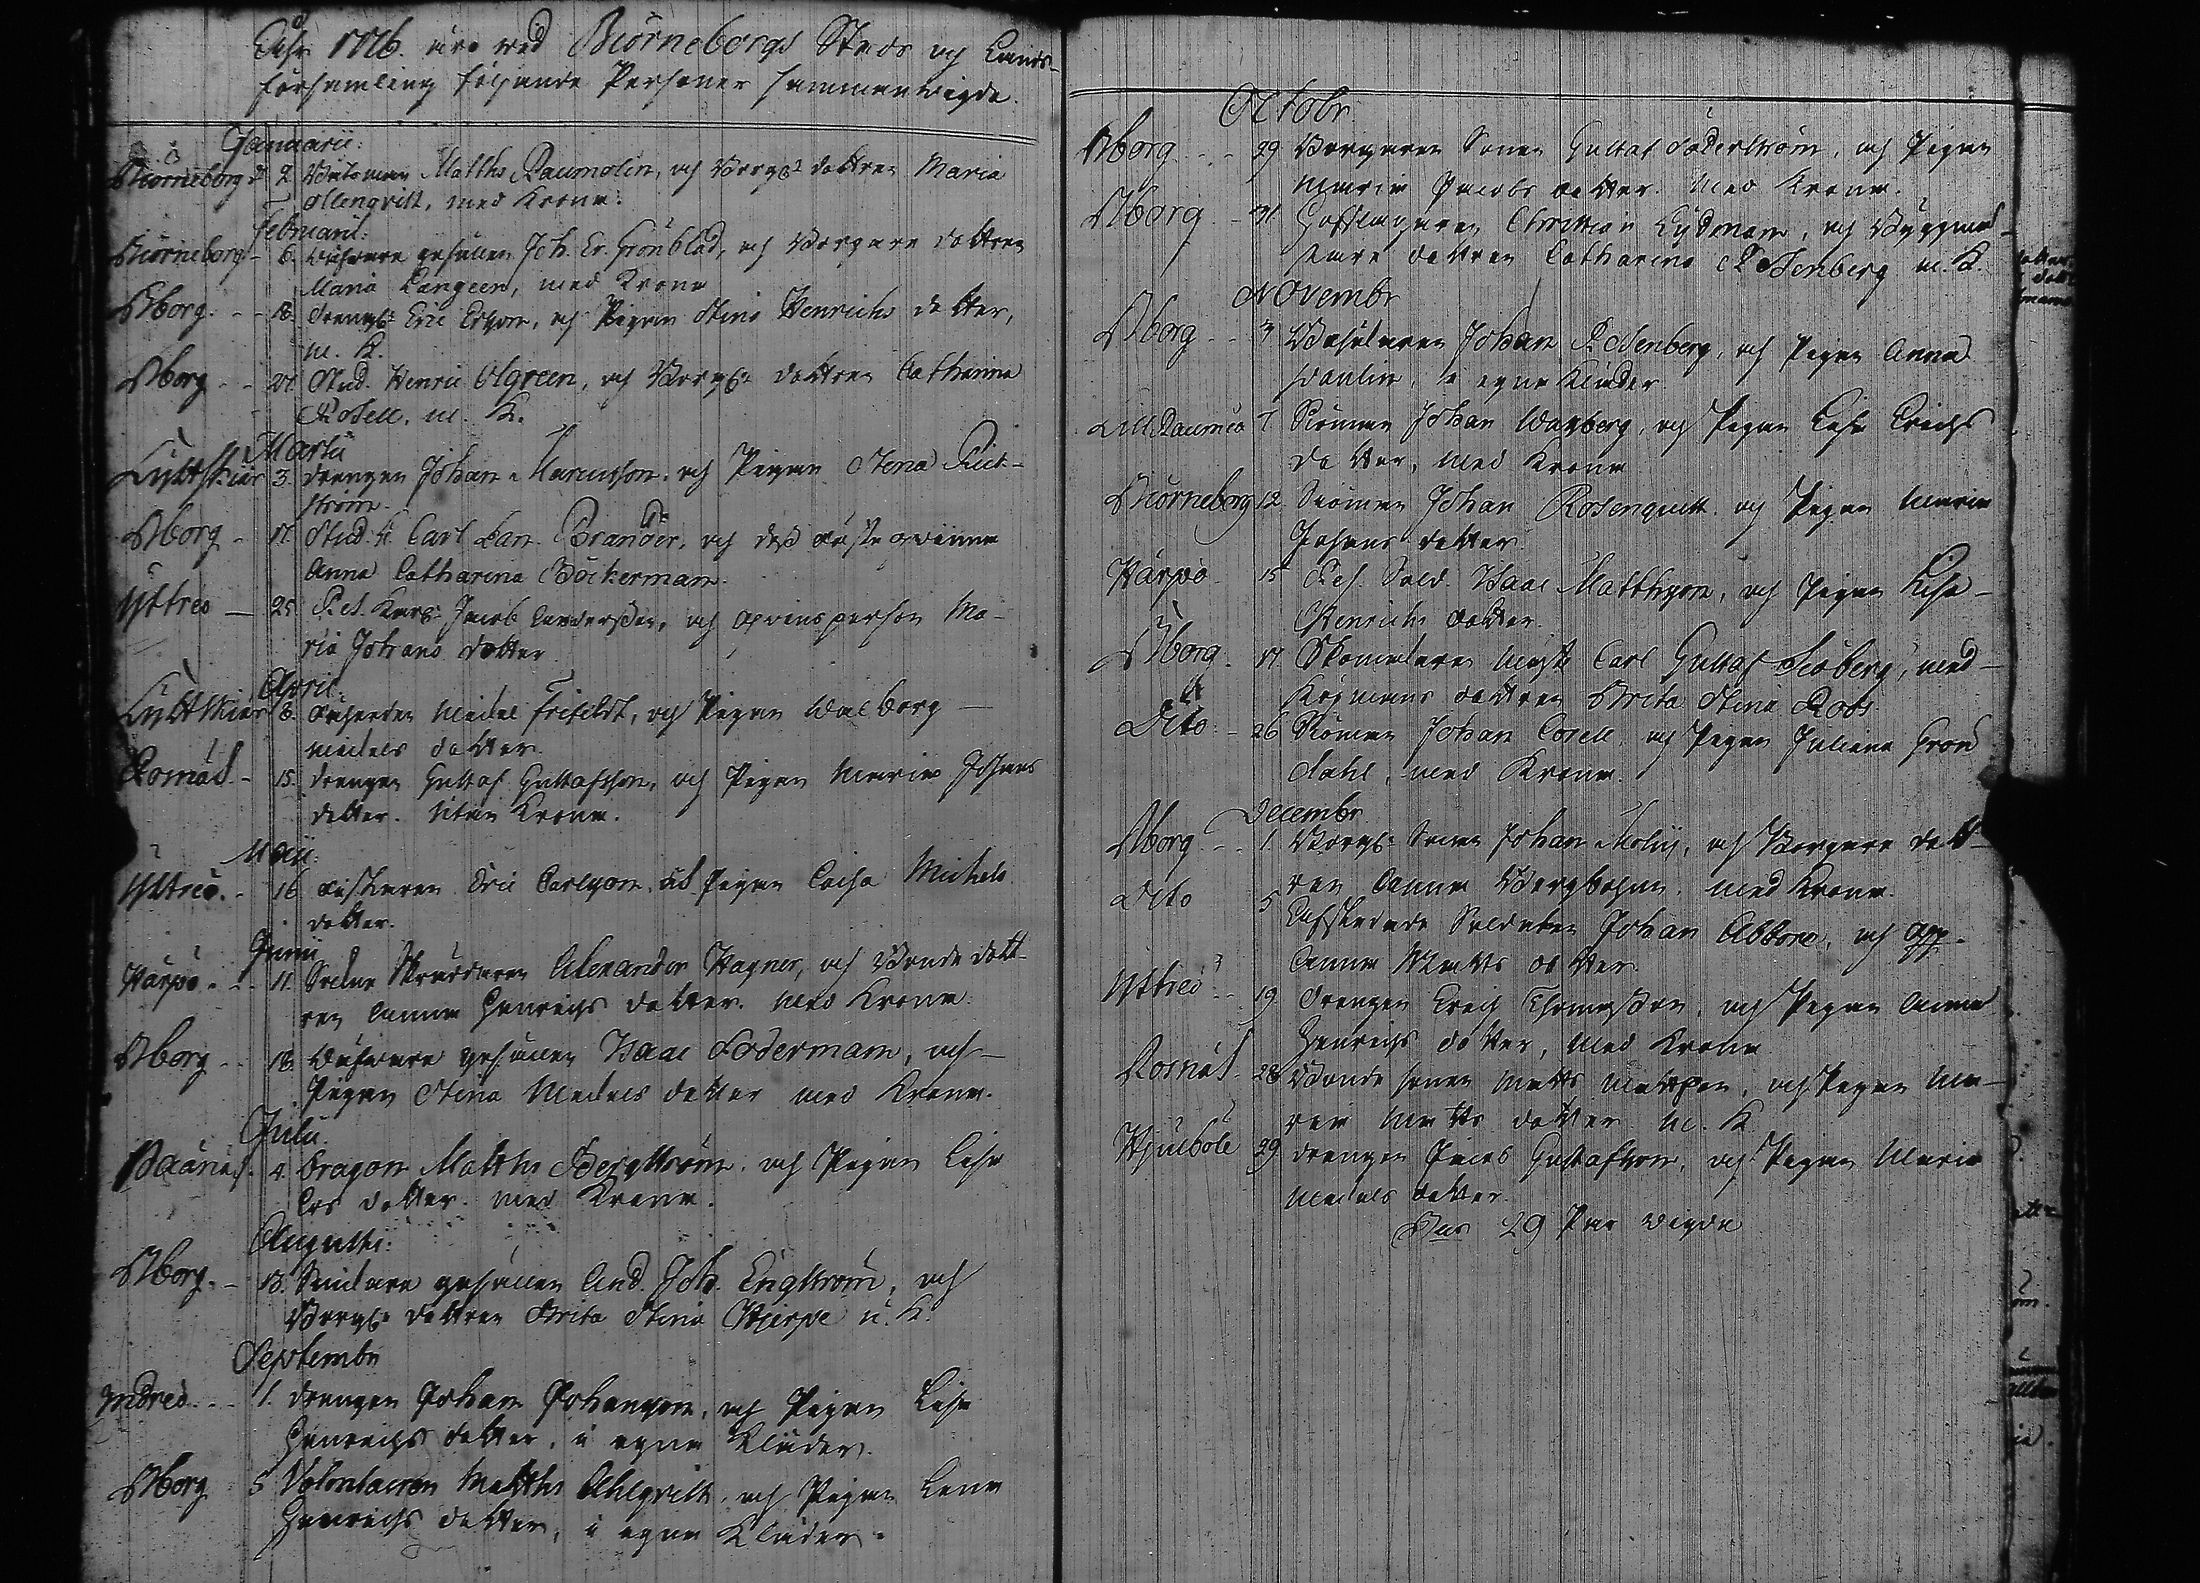 Åhr 1776 äro wid Biörneborgs Stads och Lands-
församling följande Personer sammanwigde.
Januarii:
Biörneborg d. 2. Båtsman Matths Raumolin, och Borg: dottren Maria
Menqvist, med Krona.
Februarii:
Biörneborg - 6. gesällen Joh. Er. Grönblad, och Borgare dottren
Maria Langeen, med Krona
Bborg. - - 18. drengen Eric Ersson, och Pigan Stina Henrichs dotter,
m. K.
Bborg - - Stud. Henric Algreen, och Borg: dottren Catharina
Rosell, m. K.
Martii
Lyttskiär 3. drengen Johan och Pigan Stena
ström.
Bborg - 17. Stud. Carl Dan. Brander, och dess fästeqvinna
Anna Catharina Böckerman.
Yttreö - 25. Jacob Andersson, och qvinsperson Ma-
ria Johans dotter
April:
Lyttskiär 8. Michel Frifeldt, och Pigan Walborg
Michels dotter.
Rosnäs - 15. drengen Gustaf Gustafsson, och Pigan Maria Johans
dotter. Utan Krona.
Maji:
Yttreö. - 16 Eric Carlsson, och Pigan Caisa Michels
dotter.
Junii
Härpö - - 11. Skräddaren Alexander Hagner, och Bonde dott-
ren Anna Henrichs dotter. med Krona.
Bborg - - 18. gesällen Isaac Södermam, och
Pigan Stina Michels dotter med Krona.
Julii.
4. Dragon Matths Bergström, och Pigan Lisa
dotter. med Krona.
Augusti:
Bborg. - 13. gesällen And. Joh. Engström, och
Borg: dottren Brita Stina Hjerpe u. K.
Septembr
Indreö. - - 1. drengen Johan Johansson, och Pigan Lisa
Henrichs dotter, i egna Kläder.
Bborg 5 Volontairen Matths Ahlqvist, och Pigan Lena
Henrichs dotter, i egna Kläder.
Octobr
Bborg - - 29 Borgaren Sonen Gustaf Söderström, och Pigan
Maria Jacobs dotter. med Krona.
Bborg - 31 Hofslagaren Christian Lydman, och Byggmä-
stare dottren Catharina Rosenberg m. K.
Novembr
Bborg - - Johan Rosenberg, och Pigan Anna
i egna Kläder
Lill Raumo 7 Siöman Johan Waxberg, och Pigan Lisa Erichs
dotter, med Krona
Biörneborg 12 Siöman Johan Rosenquist och Pigan Maria
Johans dotter.
Härpö 15 Sold. Isaac Mattsson, och Pigan Lisa
Henrichs dotter.
Bborg - 17 Skomakare Carl Gustaf Siöberg, med
Köpmans dottren Brita Stina Roos
Dito: - 26 Siöman Johan Cosell, och Pigan Juliana Grön
dahl, med Krona.
Decembr
Bborg - - 1. Borg: Sonen Johan Moliis, och Borgare dott-
ren Anna med Krona.
Dito 5 Afskedade Soldaten Johan Abborre, och
Anna Matts dotter.
Yttreö - - 19 drengen Erich Thomasson, och Pigan Anna
Henrichs dotter, med Krona
Rosnäs - 28 Bonde sonen Matts Mattsson, och Pigan Ma-
ria Matts dotter m. K
Hjulböle 29 drengen Jacob Gustafsson, och Pigan Maria
Michels dotter.
29 Par wigda